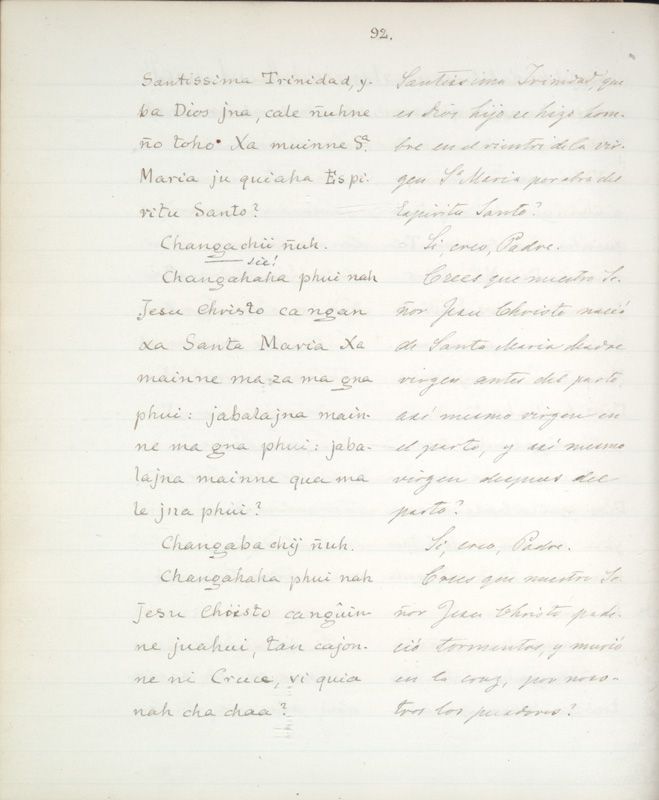 92.
Santissima Trinidad, y-
ba Dios jna, cale ñuhne
ño toho. Xa muinne Sª
Maria ju quiaha Espi-
ritu Santo?
Changachii ñuh.
sic!
Changahaha phui nah
Jesu Christo cangan
xa Santa Maria Xa
mainne ma za ma gna
phui: jabalajna main-
ne ma gna phui: jaba-
lajna mainne qua ma
le jna phui?
Changaba chij ñuh.
Changahaha phui nah
Jesu Christo cangûin-
ne juahui, tau cajon-
ne ni Cruce, vi quia
nah cha chaa?
Santissima Trinidad, que
es Dios hijo se hizo hom-
bre en el vientre de la vir-
gen Sª Maria por obra del
Espiritu Santo?
Si, creo, Padre.
Crees que nuestro Se-
ñor Jesu Christo nació
de Santa Maria Madre
virgen antes del parto,
así mesmo virgen en
el parto, y así mesmo
virgen despues del
parto?
Si, creo, Padre.
Crees que nuestro Se-
ñor Jesu Christo pade-
ció tormentos, y murió
en la cruz, por noso-
tros los pecadores?